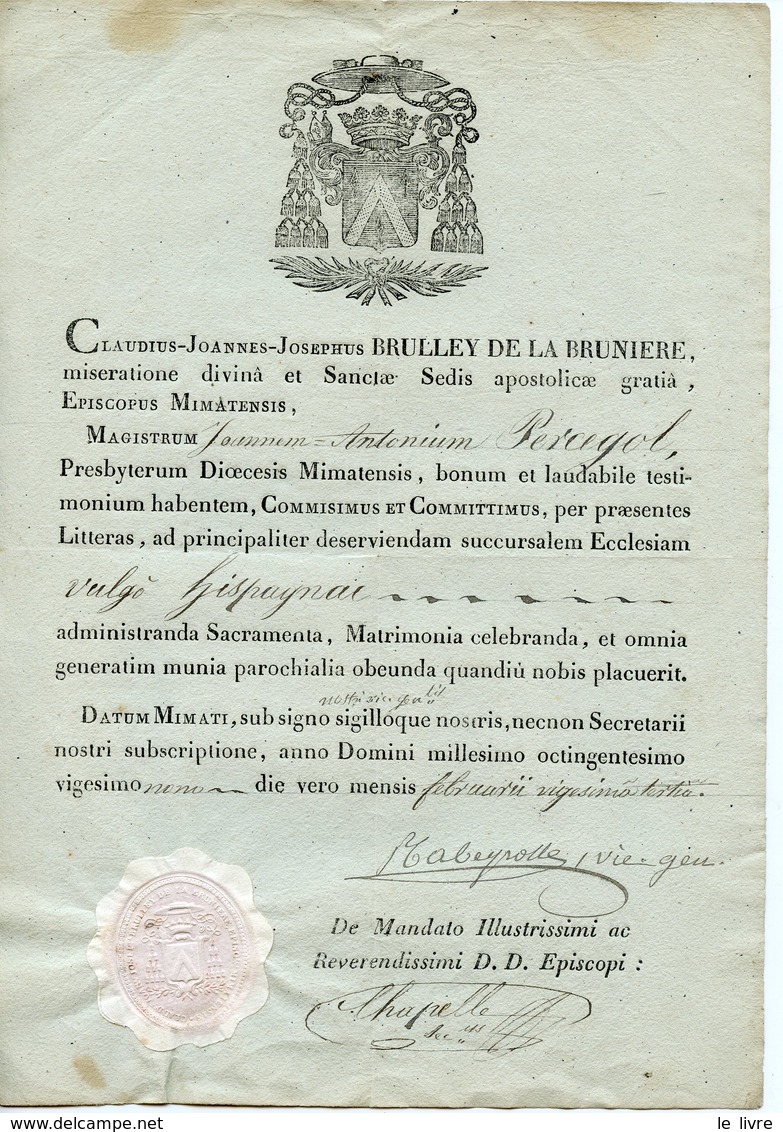 CLAUDIUS-JOANNES-JOSEPHUS BRULLEY DE LA BRUNIERE,
miseratione divinâ et Sanctæ Sedis apostolicæ gratiâ,
EPISCOPUS MIMATENSIS,
MAGISTRUM Joannem=Antonium Percegol,
Presbyterum Diœcesis Mimatensis, bonum et laudabile testi-
monium habentem, COMMISIMUS ET COMMITTIMUS, per præsentes
Litteras, ad principaliter deserviendam succursalem Ecclesiam
vulgò hispagnac
administranda Sacramenta, Matrimonia celebranda, et omnia
generatim munia parochialia obeunda quandiù nobis placuerit.
DATUM MIMATI, sub signo sigilloque nostris, necnon Secretarii
nostri subscriptione, anno Domini millesimo octingentesimo
vigesimo nono die vero mensis februarii vigesimâ tertiâ.
Rabeyrolle, vic-gen.
De Mandato Illustrissimi ac
Reverendissimi D. D. Episcopi :
Chapelle
le livre